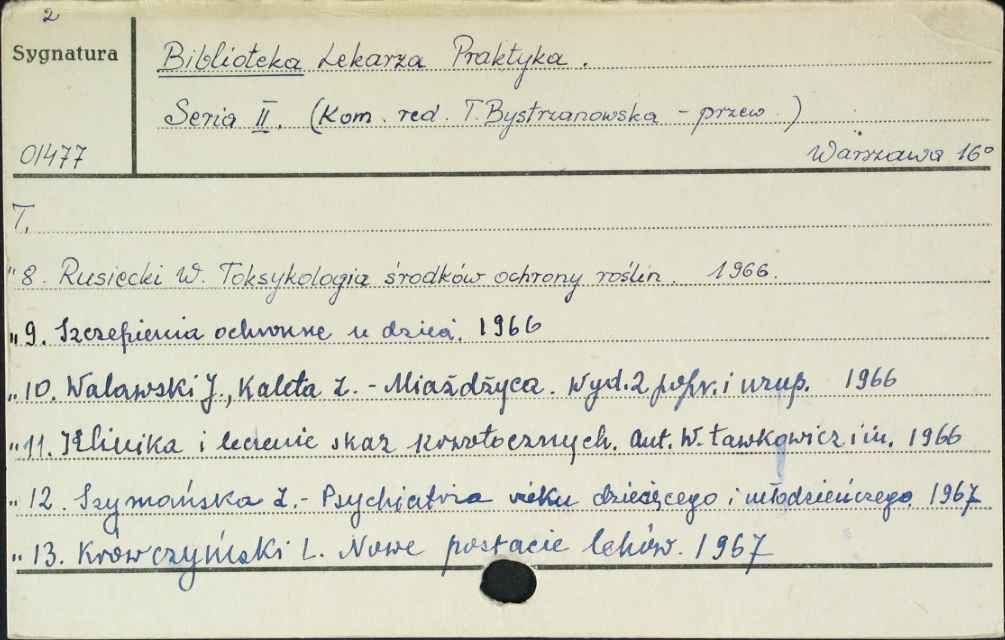 2
Sygnatura
Biblioteka Lekarza Praktyka.
Seria II. (Kom. red. T. Bystrzanowska - przew.)
01477
Warszawa 16°
T.
"8. Rusiecki W. Toksykologia środków ochrony roślin. 1966.
"9. Szczepienia ochronne u dzieci. 1966
"10. Walawski J., Kaleta Z. - Miażdżyca. Wyd. 2 popr. i uzup. 1966
"11. Klinika i leczenie skaz krwotocznych. Aut. W. Ławkowicz i in. 1966
"12. Szymańska Z. - Psychiatria wieku dziecięcego i młodzieńczego. 1967
"13. Krówczyński L. Nowe postacie leków. 1967